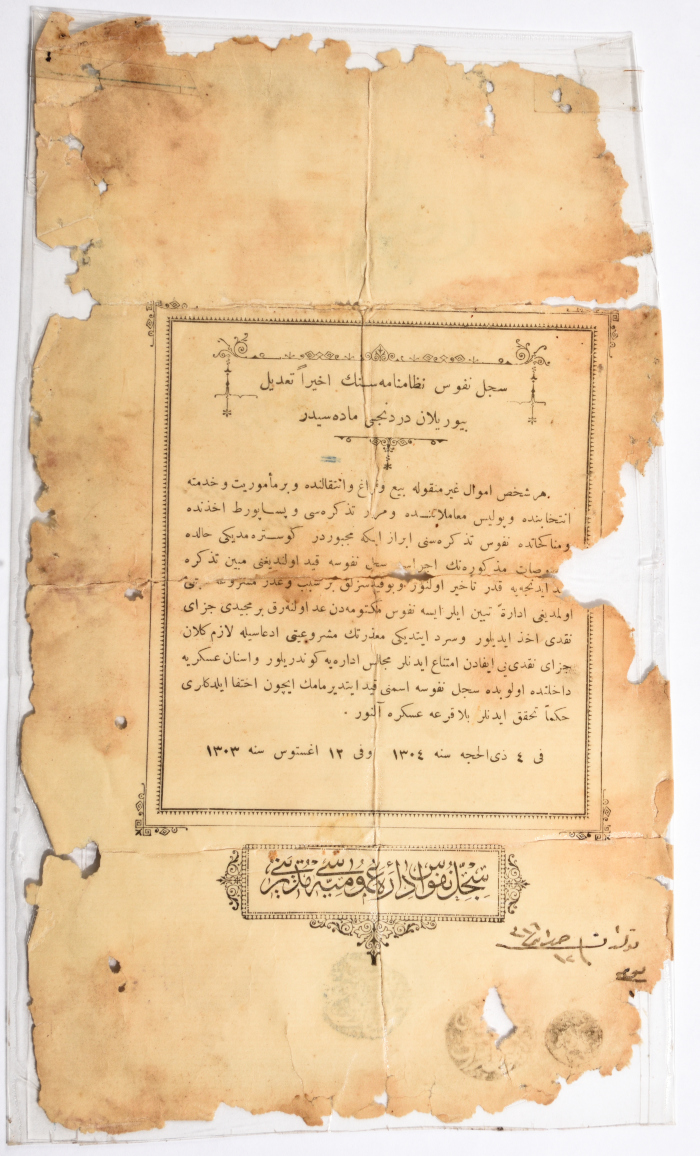 سجل نفوس نظامنامه‌سنك اخيراً تعديل
بيوريلان دردنجى ماده‌سيدر
هر شخص اموال غير منقوله بيع وفراغ وانتقالنده وبر مأموريت وخدمته
انتخابنده وپوليس معاملاتنده ومرور تذكره‌سى وپساپورط اخذنده
ومناكحاتده نفوس تذكره‌سنى ابراز ايتمكه مجبوردر كوستره‌مديكى حالده
مذكوره‌نك اجراسى سجل نفوسه قيد اولنديغنى مبين تذكره
ايدنجه‌يه قدر تأخير اولنور
اولمديغى ادارةً تبين ايلر ايسه نفوس مكتومه‌دن عد اولنه‌رق بر مجيدى جزاى
نقدى اخذ ايديلور وسرد ايتديكى معذرتك مشروعيتى ادعاسيله لازم كلان
جزاى نقدى‌يى ايفادن امتناع ايدنلر مجالس اداره‌يه كوندريلور واسنان عسكريه
داخلنده اولوبده سجل نفوسه اسمنى قيد ايتديرمامك ايچون اختفا ايلدكلرى
حكماً تحقق ايدنلر بلا قرعه عسكره آلنور .
فى ٤ ذى الحجه سنه ١٣٠٤ وفى ١٢ اغستوس سنه ١٣٠٣
سجل نفوس اداره عموميه‌سى مديريتى